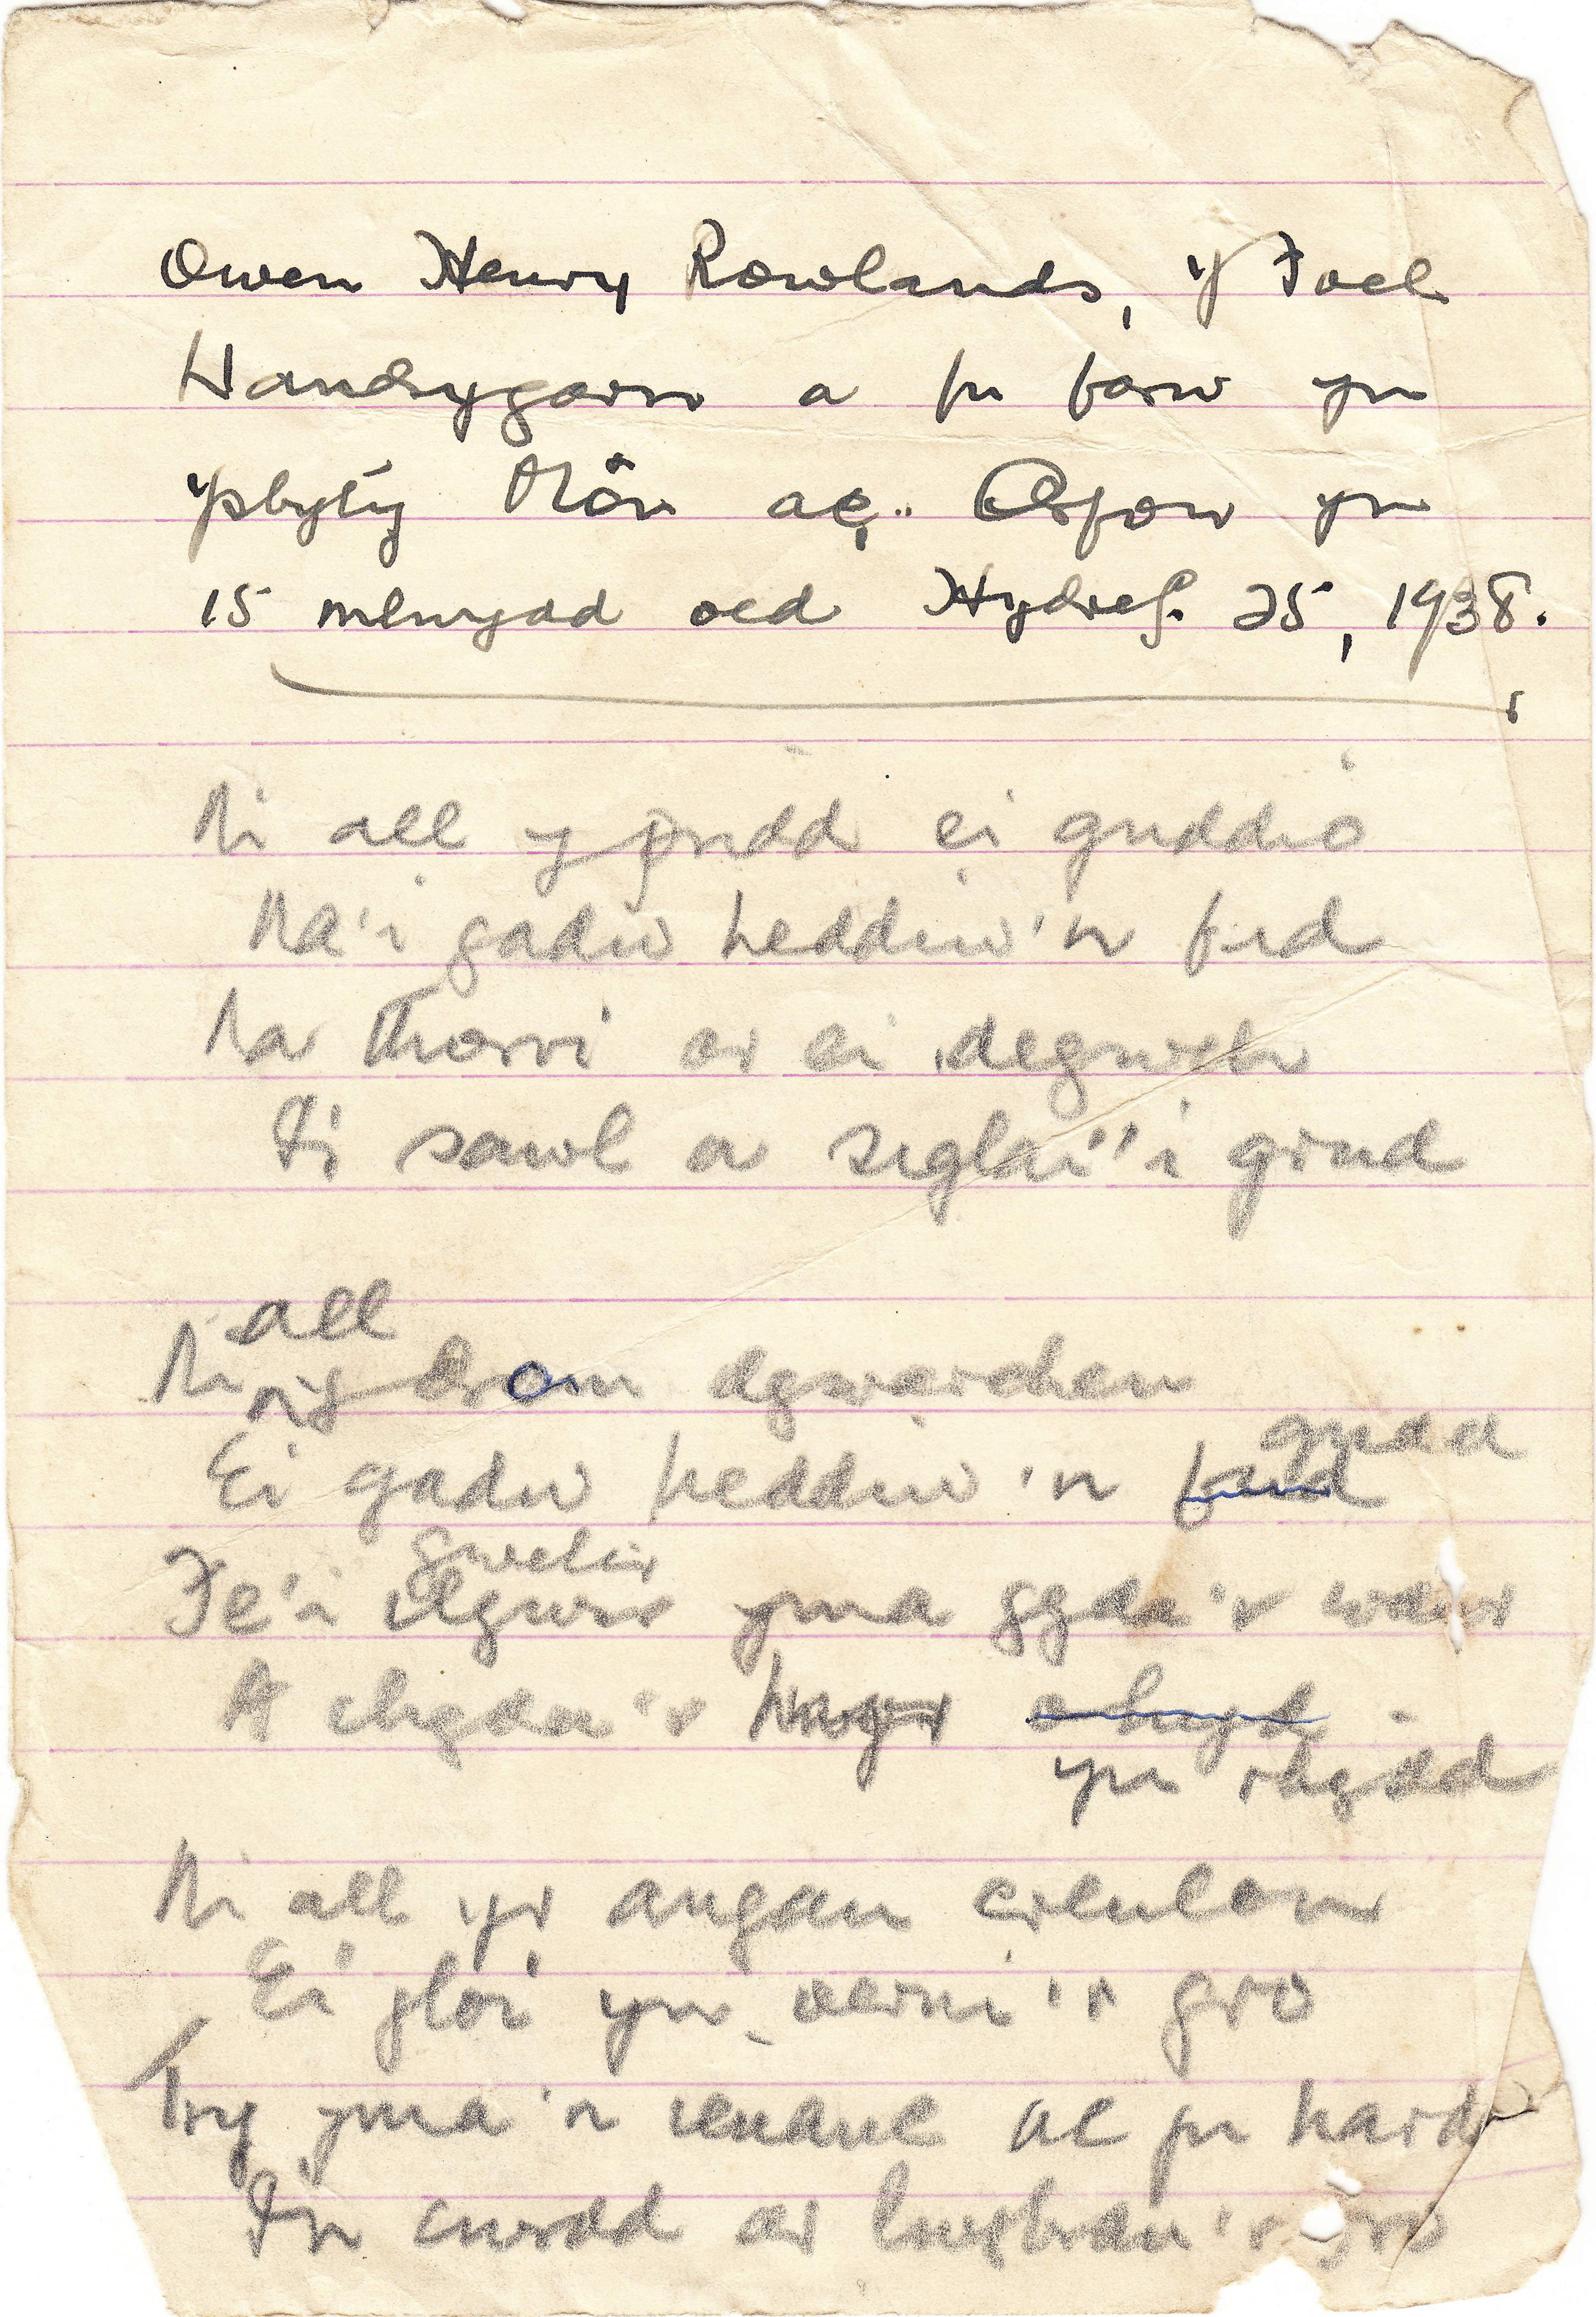 Owen Henry Rowlands, y Foel
Llandrygarn a fu farw yn
ysbyty Môn ac Arfon yn
15 mlwydd oed Hydref. 25, 1938.
Ni all y pridd ei guddio
Na'i gadw heddiw'n fud
Na Thorri ar ei degwch
Fi sawl a siglai'i grud
all
Ni y drom dywarchen
gudd
Ei gadw heddiw'n fud
gwelir
Fe'i yma gyda'r wawr
A chyda'r hwyr
yn rhydd
Ni all yr angau creulon
Ei gloi yn oerni'r gro
Try yma'n ieuanc ac yn hardd
I'n cwrdd ar lwybrau'r fro